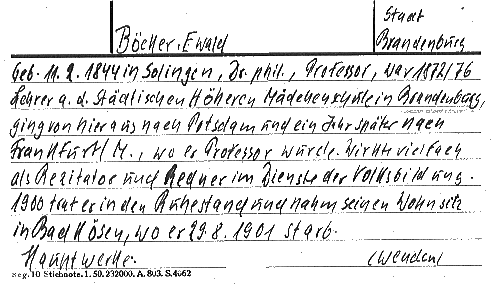 Stadt
Böcker, Ewald Brandenburg
Geb. 11.2.1844 in Solingen, Dr. phil., Professor, war 1872/76
Lehrer a. d. Städtischen Höheren Mädchenschule in Brandenburg,
ging von hier aus nach Potsdam und ein Jahr später nach
Frankfurt/M., wo er Professor wurde. Wirkte vielfach
als Rezitator und Redner im Dienste der Volksbildung.
1900 trat er in den Ruhestand und nahm seinen Wohnsitz
in Bad Kösen, wo er 29.8.1901 starb.
Hauptwerke. (wenden)
Reg. 10 Stichnote. 1. 50. 232000. A. 803. S. 4662